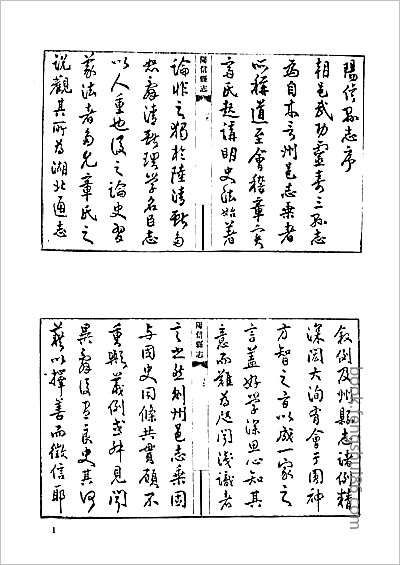 陽信縣志序
朝邑武功靈壽三縣志
為自來言州邑志乘者
所稱道至會稽章實
齋氏起講明史法始著
陽信縣志
論非之獨於陸清獻多
恕辭清獻理學名臣志
以人重也後之論史習
法者多允章氏之
說觀其所為湖北通志
敘例及州縣志諸例精
深閎大洵有會于圓神
方智之旨以成一家之
言蓋好學深思心知其
意而難為咫聞淺識者
陽信縣志
言也然則州邑志乘固
與國史同條共貫顧不
重歟義例或殊見聞
異辭後有良史其何
藉以擇善而徵信耶
1